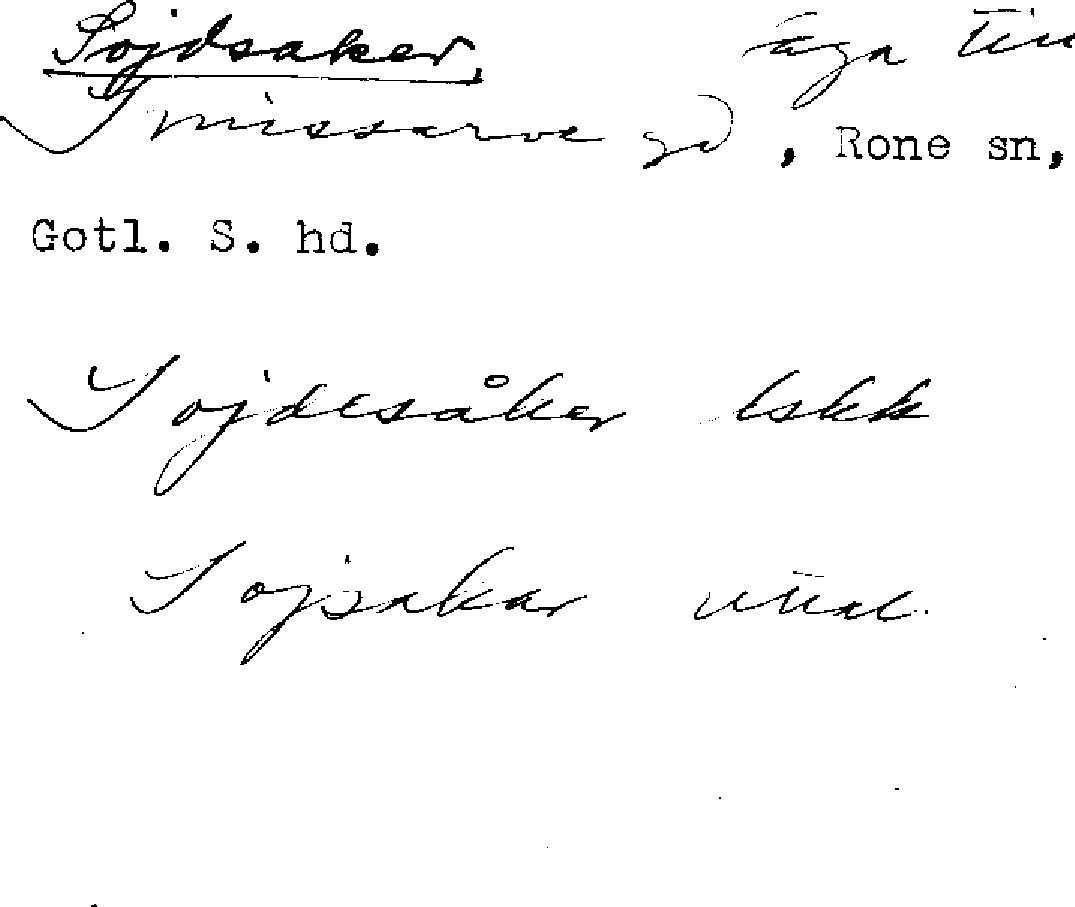 Sojdsaker äga till
Smissarve gd, Rone sn,
Gotl. S. hd.
Sojdesåker lskk
Sojsakar uttal